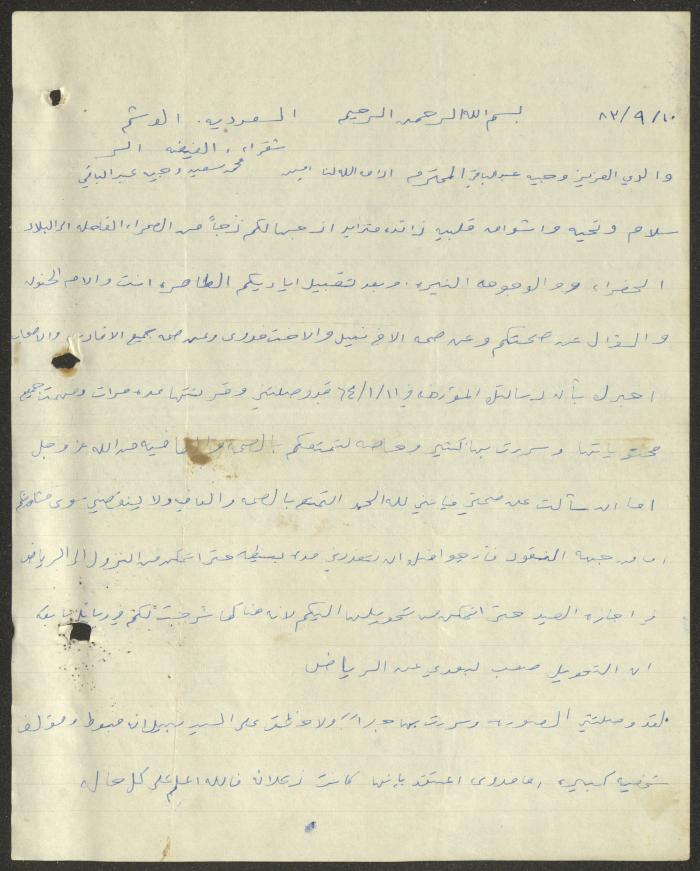 ٨٣/٩/١٠ بسم الله الرحمن الرحيم السعودية. الوشم
شقراء، الفيضه السر
والدي العزيز وجيه عبدالباقي المحترم ادام الله لنا امين محمد سعيد وجيه عبدالباقي
سلام وتحيه واشواق قلبيه زائده متزايد ازجيها لكم من الصحراء القاحله الى البلاد
الخضراء والوجوه النيره. وبعد تقبيل اياديكم الطاهره انت والام الحنون
والسؤال عن صحتكم وعن صحه الاخ نبيل والاخت فدوى وعن صحه جميع الاقارب والاصحاب
اخبرك بأن رسالتك المؤرخه في ٦٤/١/١١ قد وصلتني وقرئتها عده مرات وفهمت جميع
محتوياتها وسررت بها كثير وخاصه لتمتعكم بالصحه والعافيه من الله عز وجل
اما ان سألت عن صحتي فإنني لله الحمد اتمتع بالصحه والعافيه ولا ينقصني سوى مشاهدتكم
اما من جهه النقود فأرجو ان تعذرني مده بسيطه حتى اتمكن من النزول الى الرياض
في اجازه العيد حتى اتمكن من تحويلها اليكم لانه هنا كما شرحت لكم في رسائل سابقه
ان التحويل صعب لبعدي عن الرياض
لقد وصلتني الصوره وسررت بها جدا ولاحظت على السيد نبيل انه مبوط
شخصيه كبيره، اما فدوى اعتقد بإنها كانت زعلانه فالله اعلم على كل حال